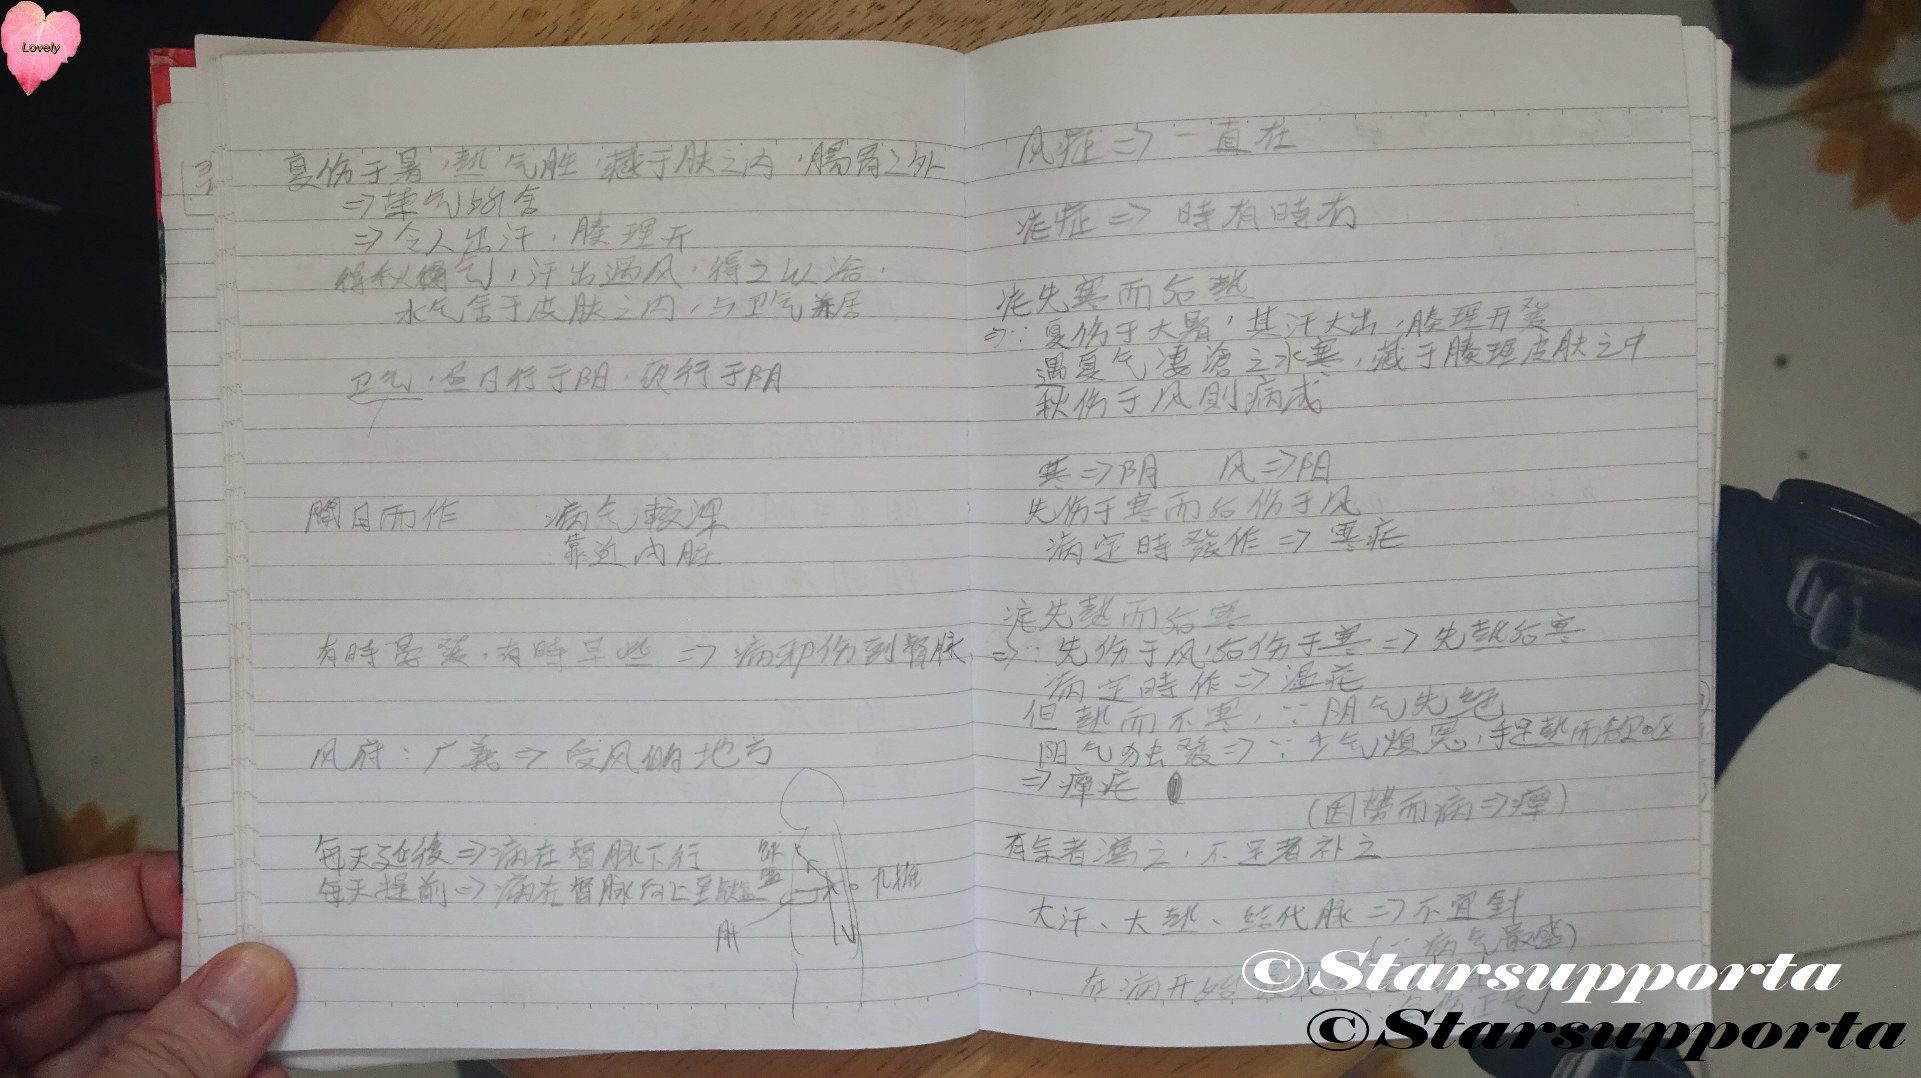 Lovely
夏伤于暑,热气盛,藏于肤之内,腸胃之外
⇒荣气所舍
⇒令人出汗,腠理开
得秋气,汗出遇风,得之以浴,
水气舍于皮肤之内,与卫气兼居
卫气,昼日行于阳,夜行于阴
間日而作 病气較深
靠近内脏
有時晏發,有時早些 ⇒ 病邪伤到督脉
风府:广義 ⇒ 受风的地方
每天延後 ⇒ 病在督脉下行
每天提前 ⇒ 病在督脉向上至缺盆
缺盆
九椎
风症 ⇒ 一直在
疟症 ⇒ 時有時冇
疟先寒而后热
⇒∵夏伤于大暑,其汗大出,腠理开發
遇夏气凄滄之水寒,藏于腠理皮肤之中
秋伤于风則病成
寒⇒阴 风⇒阳
先伤于寒而后伤于风
病定時發作 ⇒ 寒疟
疟先热而后寒
⇒∵先伤于风后伤于寒 ⇒ 先热后寒
病定時作 ⇒ 温疟
但热而不寒,∵阴气先绝
阳气独發 ⇒∵少气烦冤,手足热而欲呕
⇒瘅疟
(因劳而病⇒瘅)
有余者瀉之,不足者补之
大汗、大热、结代脉 ⇒ 不宜針
(∵病气最盛)
在病开始
正气)
©Starsupporta
©Starsupporta